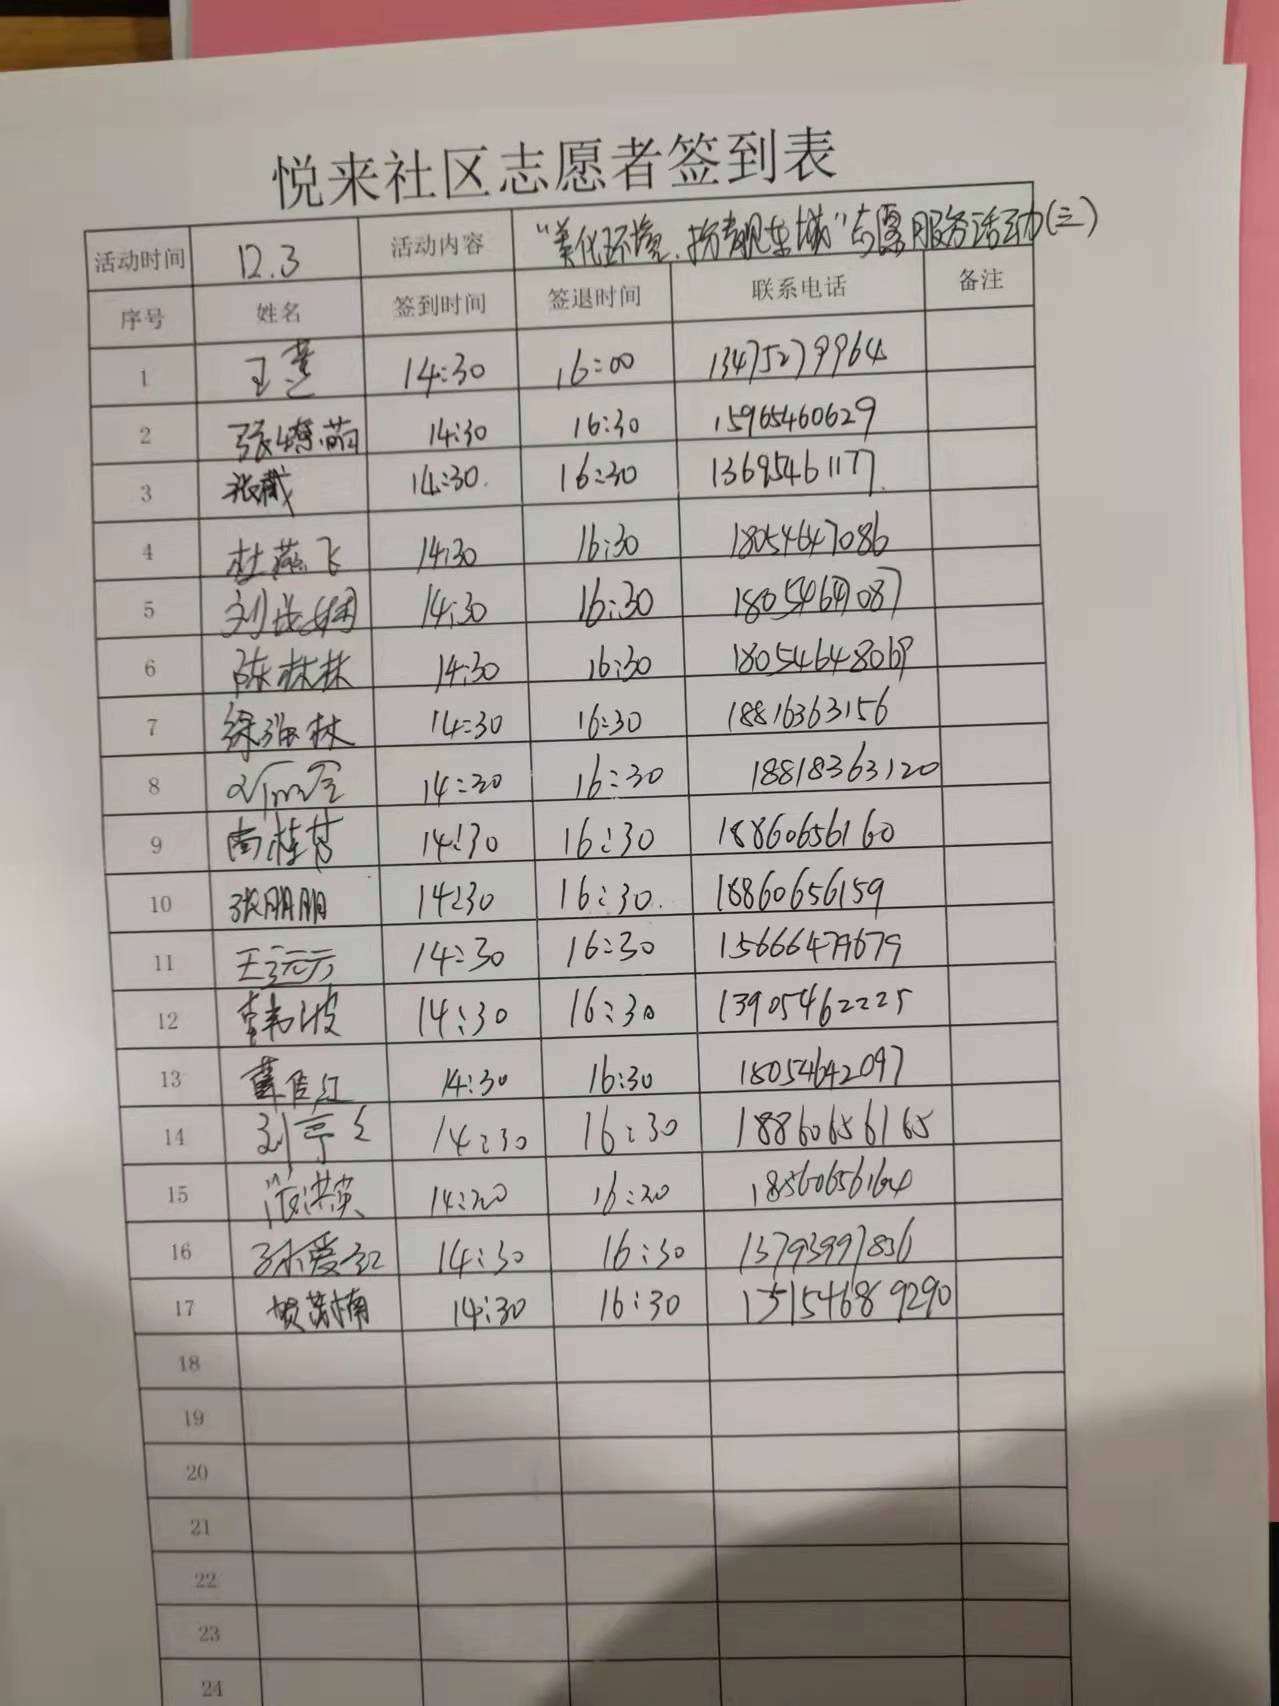 悦来社区志愿者签到表
活动时间 12.3 活动内容 "美化环境,扮靓东城"志愿服务活动(三)
序号 姓名 签到时间 签退时间 联系电话 备注
1 14:30 16:00 13475279964
2 14:30 16:30 15965460629
3 14:30. 16:30 13695461177.
4 杜燕飞 14:30 16:30 18054647086
5 14:30 16:30
6 陈林林 14:30 16:30 18054648069
7 14:30 16:30 18816363156
8 14:30 16:30 18818363120
9 14:30 16:30 18860656160
10 张朋朋 14:30 16:30. 18860656159
11 王元元 14:30 16:30
12 韩波 14:30 16:30 13905462225
13 14:30 16:30 18054642097
14 14:30 16:30 18860656165
15 范洪英
16 孙爱红 14:30 16:30
17 14:30 16:30
18
19
20
21
22
23
24